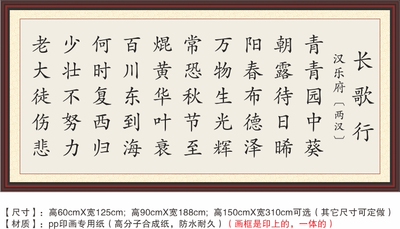 长歌行
汉乐府［两汉］
青青园中葵
朝露待日晞
阳春布德泽
万物生光辉
常恐秋节至
焜黄华叶衰
百川东到海
何时复西归
少壮不努力
老大徒伤悲
【尺寸】：高60cmX宽125cm; 高90cmX宽188cm; 高150cmX宽310cm可选（其它尺寸可定做）
【材质】：pp印画专用纸（高分子合成纸，防水耐久）（画框是印上的，一体的）